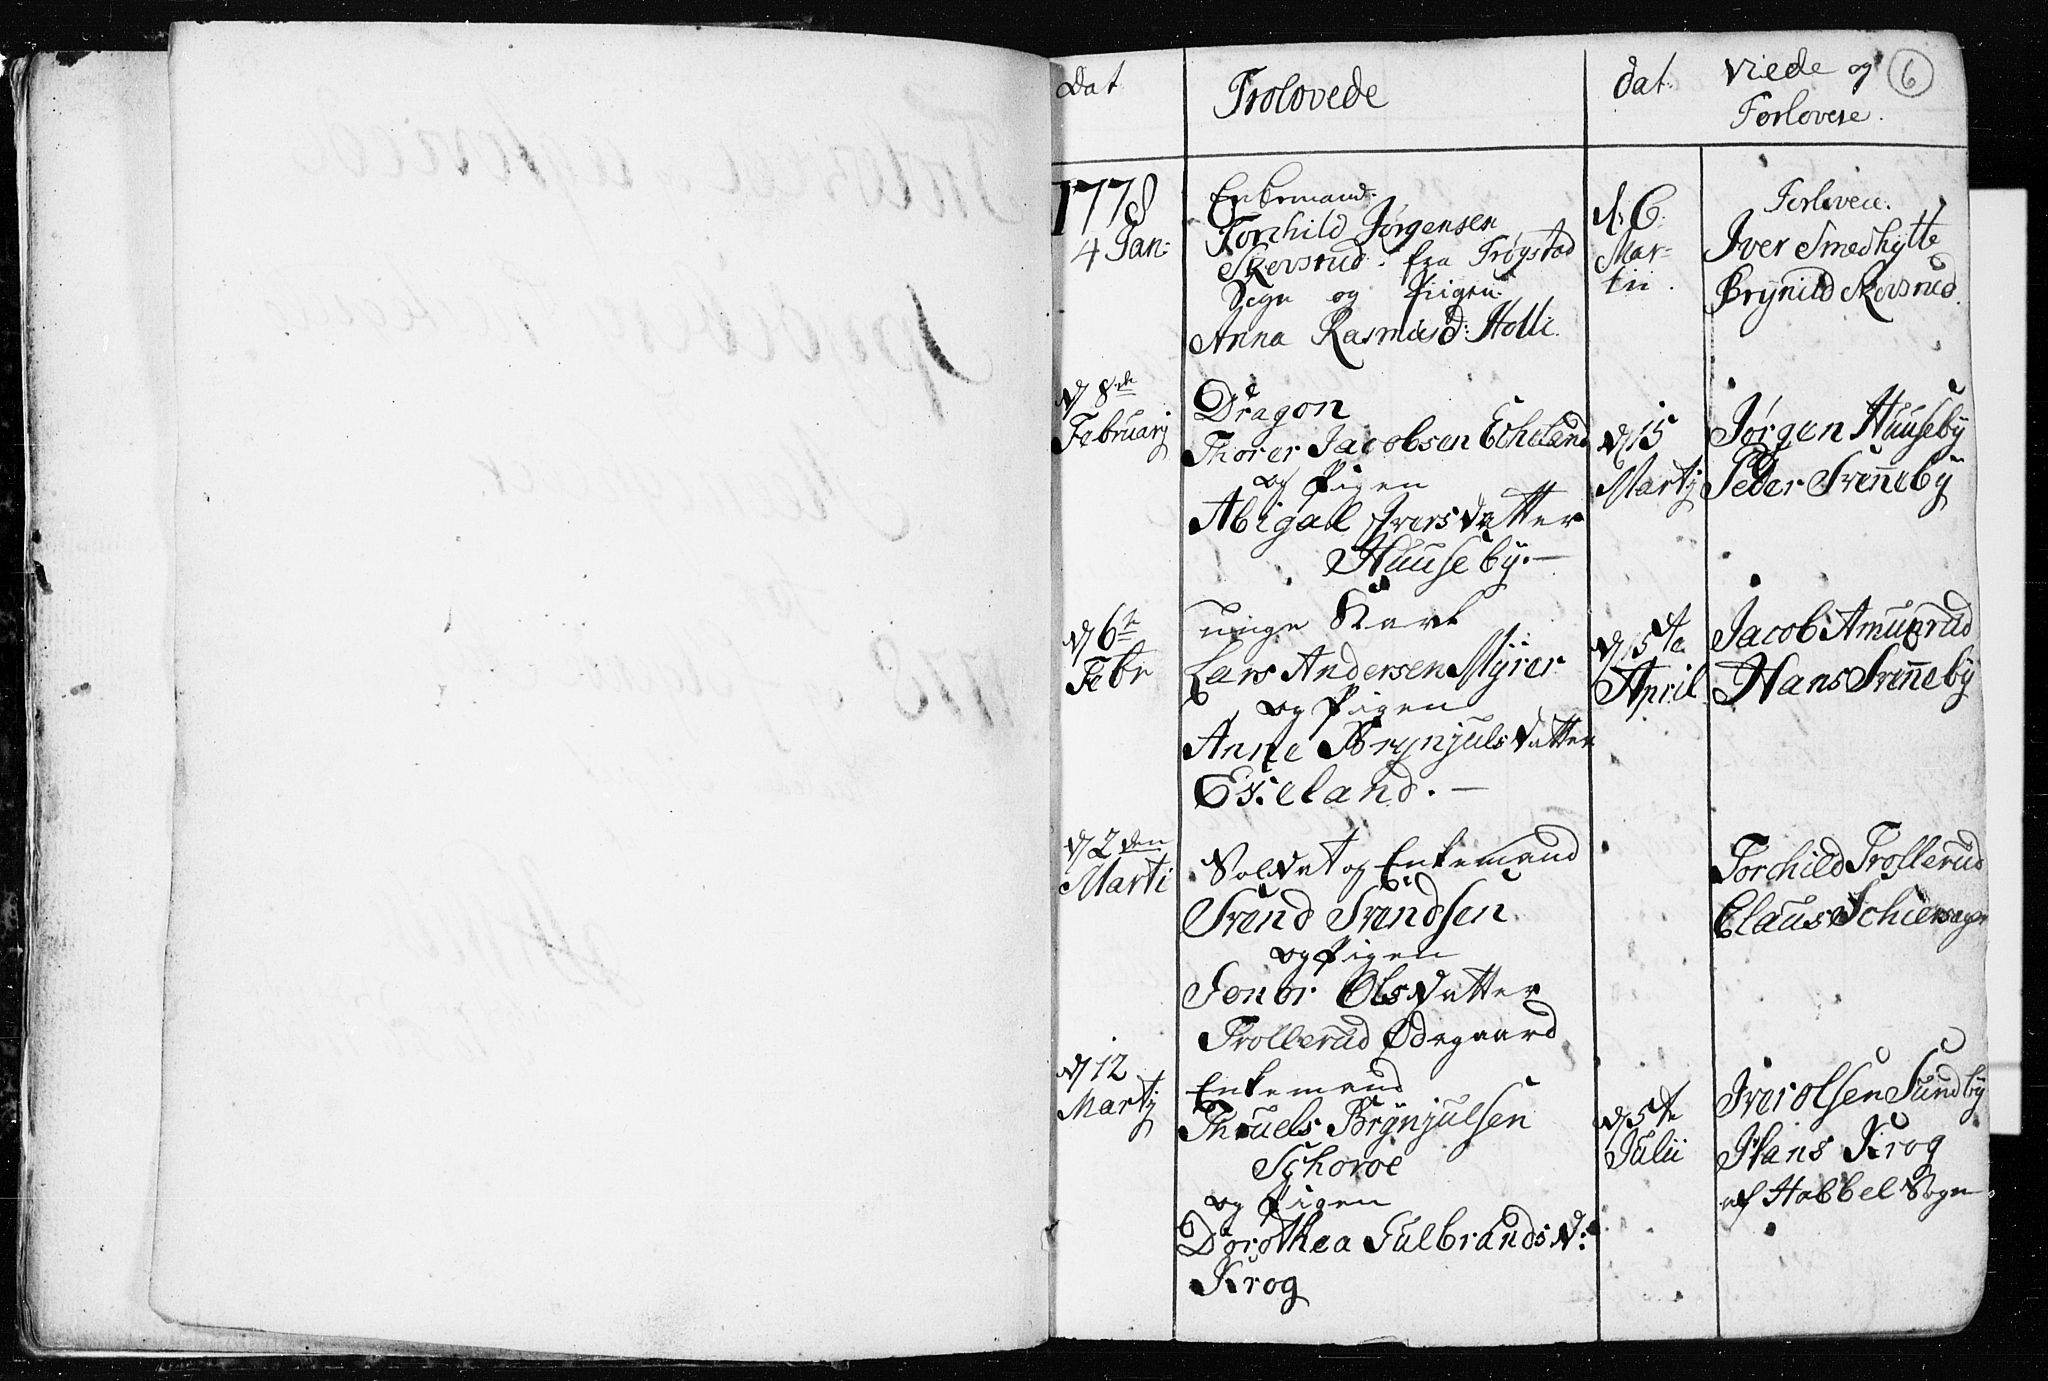 Dat
Trolovede
dat
Viede og
Forlovere.
6
1778
4 Jan:
Enkemand:
Torchild Jørgensen
Skevsrud. fra Trøgstad
Sogn og Piigen
Anna Rasmusd: Holli.
d: 6.
Mar-
tii.
Forlovere.
Iver Smedhytte
Brynild Skevsrud.
d 8de
Februarij
Dragon
Thorer Jacobsen Echeland
og Pigen
Abigael Iversdatter
Huuseby.
d 15
Martij
Jørgen Huuseby
Peder Svenneby
d 6te
Febr
unge Karl
Lars Andersen Myrer
og Pigen
Anne Brynjulsdatter
Eskeland.
d 5te
April
Jacob Amundrud
Hans Svenneby
d 2den
Marti
Soldat og Enkemand
Svend Svendsen
og Pigen
Olsdatter
Trollerud Ødegaard
Torchild Trollerud
Claus
d 12
Martij
Enkemand
Thruels Brynjulsen
og Pigen
Dorothea Gulbrandsd:
Krog
d 5te
Julii
Iver Olsen Sundby
Hans Krog
af Habbel Sogn